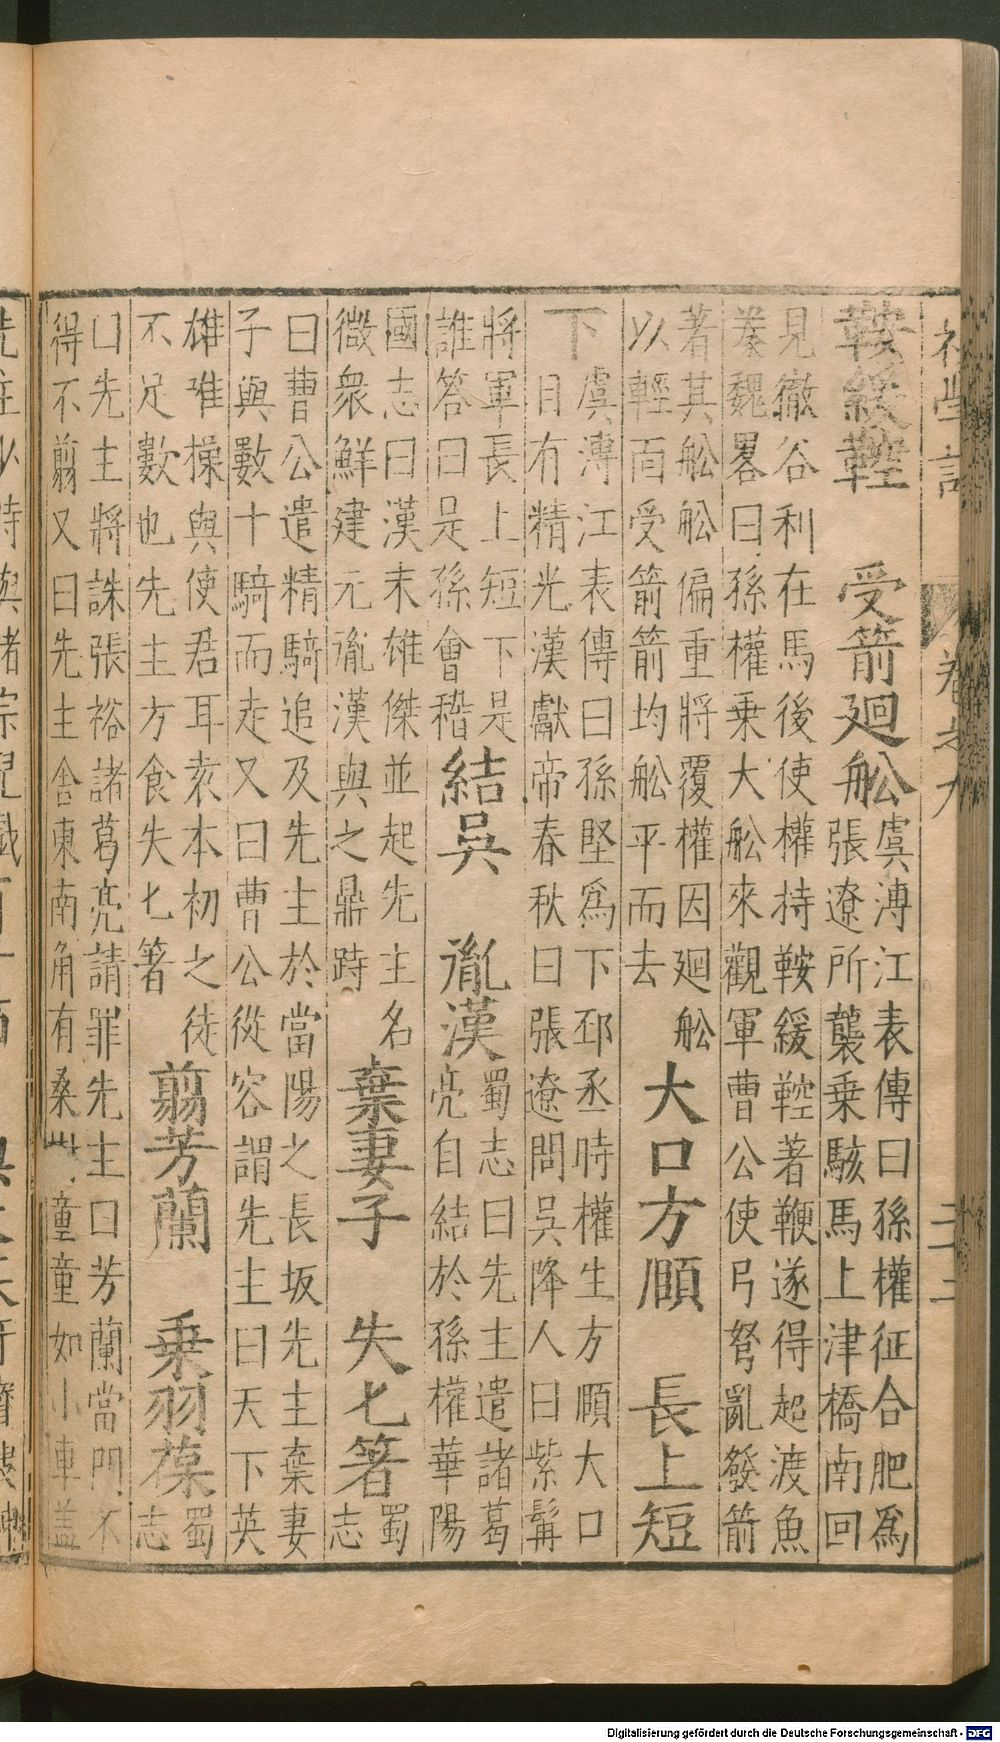 卷之九
鞍緩鞚　受箭廻舩
虞溥江表傳曰孫權征合肥爲
張遼所襲乗駭馬上津橋南回
見徹谷利在馬後使權持鞍緩鞚著鞭遂得起渡魚
豢魏畧曰孫權乗大舩來觀軍曹公使弓弩亂發箭
著其舩舩偏重將覆權因廻舩
以輕面受箭箭均舩平而去
大口方頥　長上短
下
虞溥江表傳曰孫堅爲下邳丞時權生方頥大口
目有精光漢獻帝春秋曰張遼問吳降人曰紫髯
將軍長上短下是
誰答曰是孫會稽
結吳　胤漢
蜀志曰先主遣諸葛
亮自結於孫權華陽
國志曰漢末雄傑並起先主名
微衆鮮建元胤漢與之鼎跱
棄妻子　失匕箸
蜀
志
曰曹公遣精騎追及先主於當陽之長坂先主棄妻
子與數十騎而走又曰曹公從容謂先主曰天下英
雄唯操與使君耳袁本初之徒
不足數也先主方食失匕箸
翦芳蘭　乗羽葆
蜀
志
曰先主將誅張裕諸葛亮請罪先主曰芳蘭當門不
得不翦又曰先主舍東南角有桑童童如小車盖
Digitalisierung gefördert durch die Deutsche Forschungsgemeinschaft - DFG